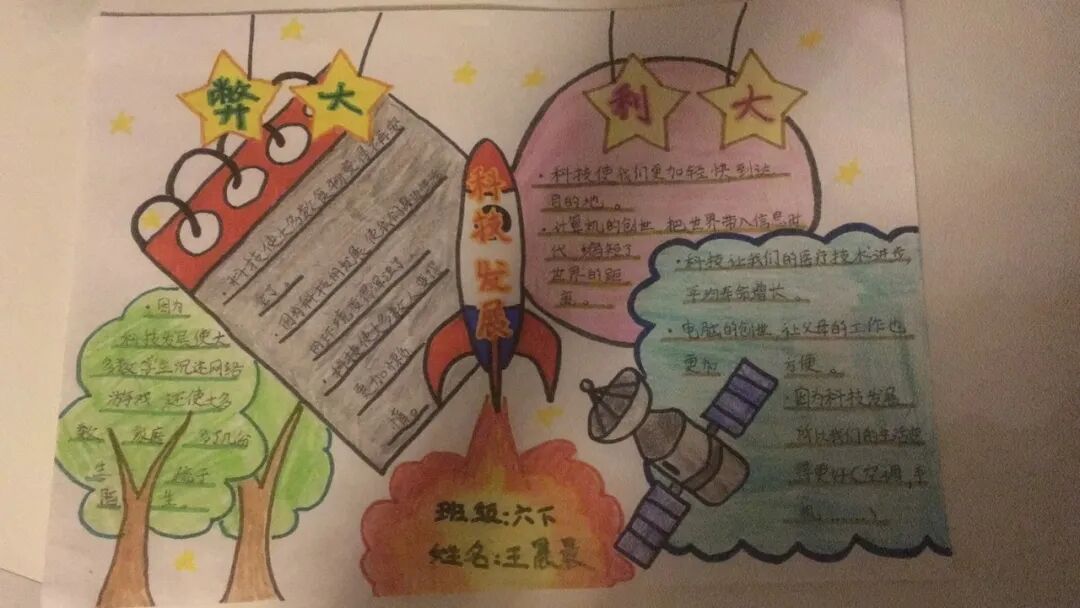 弊大
利大
科技发展
·科技使我们更加轻快到达
目的地。
·计算机的创世 把世界带入信息时
代,缩短了
世界的距
离。
·科技让我们的医疗技术进步,
平均寿命增长。
·电脑的创世,让父母的工作也
更加 方便。
·因为科技发展
所以我们的生活变
得更好(空调,手
机,……)
·科技使大多数食物变
·因为科技的发展 使
·把科技使大多数人变得
更加懒
惰
·因为
科技发展使大
多数学生沉迷网络
游戏 还使大多
数 家庭
生 孩子
生。
班级:六下
姓名:王晨